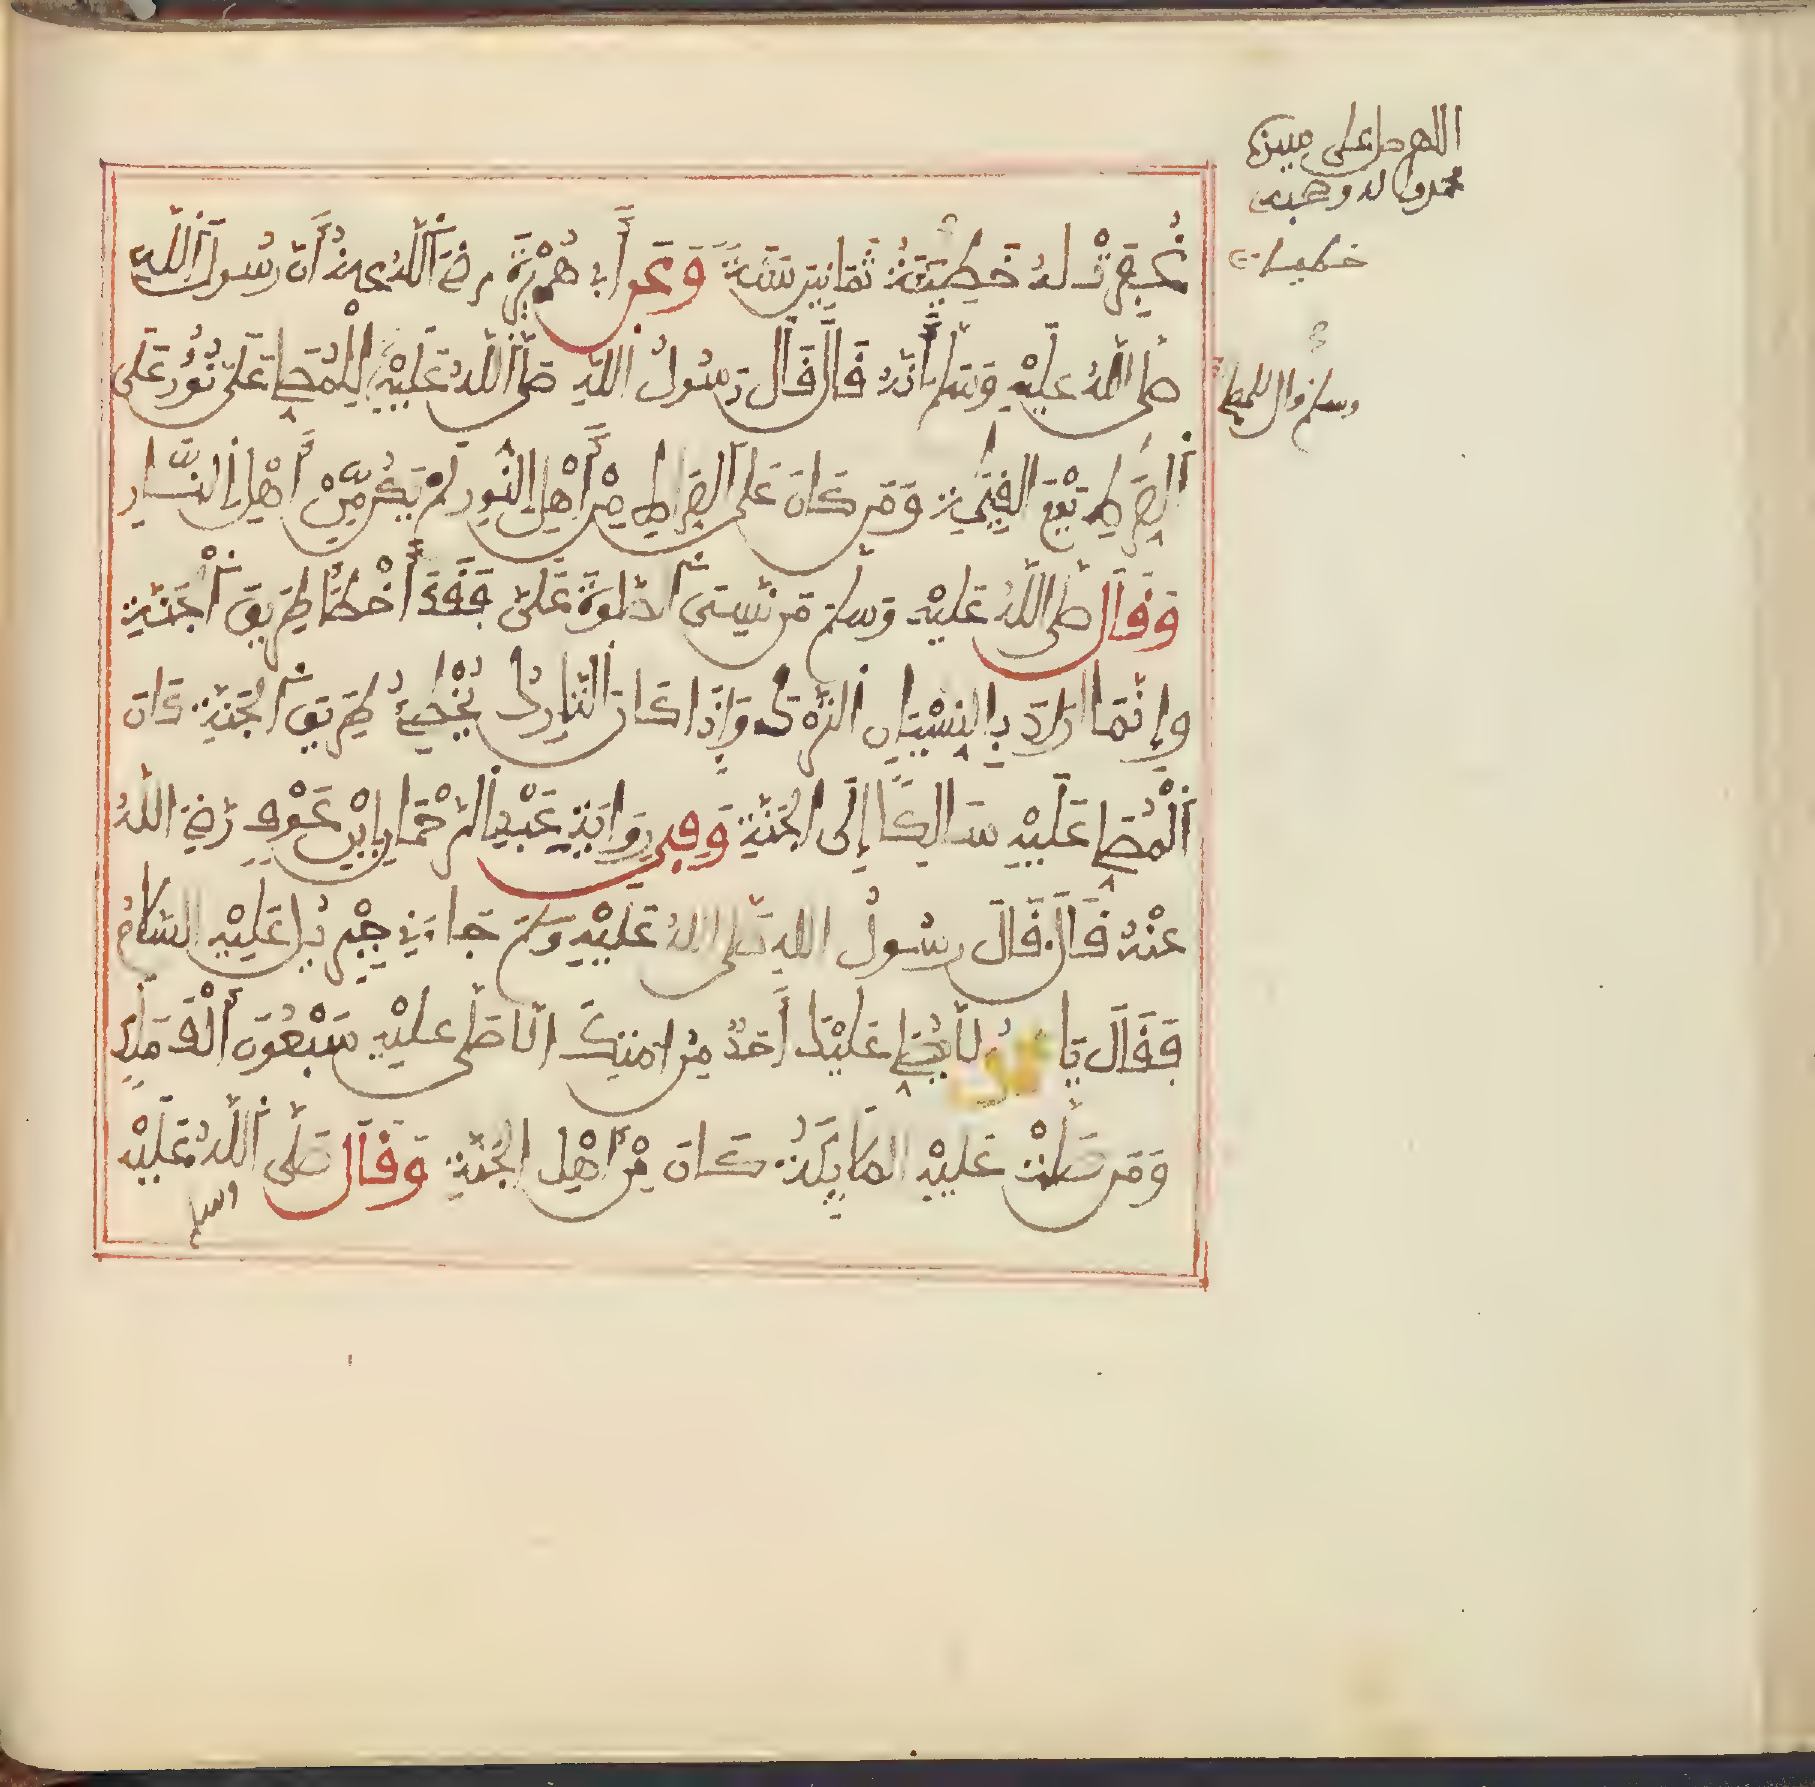 اللهم صل على سيدنا
محمد واله وصحبه
خطيئات
وسلم قال للمصلي
غُفِرَتْ لَهُ خَطِيئَةُ ثَمَانِينَ سَنَةً وَعَنْ أَبِي هُرَيْرَةَ رضي اللهُ عنهُ أَنَّ رَسُولَ اللهِ
صلى اللهُ عليْهِ وَسَلَّمَ أَنَّهُ قَالَ قَالَ رَسُولُ اللهِ صَلَّى اللهُ عَلَيْهِ لِلْمُصَلِّي عَلَيَّ نُورٌ عَلَى
الصِّرَاطِ يَوْمَ الْقِيَمَةِ وَمَن كَانَ عَلَى الصِّرَاطِ مِنْ أَهْلِ النُّورِ لَمْ يَكُن مِّنْ أَهْلِ النَّارِ
وَقَالَ صلى اللهُ عَلَيْهِ وَسلم مَن نَّسِيَ الصَّلوةَ عَلَيَّ فَقَدْ أَخْطَأَ طَرِيقَ الْجَنَّةِ
وإِنَّمَا ارَادَ بِالنِّسْيَانِ التَّرْكَ وَإِذَا كَانَ التَّارِكُ يُخْطِئُ طَرِيقَ الْجَنَّةِ كَانَ
الْمُصَلِّي عَلَيْهِ سَالِكًا إِلَى الْجَنَّةِ وَفِي رِوَايَةِ عَبْدِ الرَّحْمَانِ بْنِ عَوْفٍ رَضِيَ اللهُ
عَنْهُ قَالَ قَالَ رسُولُ اللهِ صَلَّى اللهُ عَلَيْهِ وَسَلَّمَ جَاءَنِي جِبْرِيلُ عَلَيْهِ السَّلَامُ
فَقَالَ يَا مُحَمَّدُ لَا يُصَلِّي عَلَيْكَ أَحَدٌ مِنْ امَّتِكَ الَّا صَلَّى عَلَيْهِ سَبْعُونَ أَلْفَ مَلَكٍ
وَمَن صَلَّتْ عَلَيْهِ الْمَلَايِكَةُ كَانَ مِنْ أَهْلِ الْجَنَّةِ وَقَالَ صَلَّى اللهُ عَلَيْهِ
وسلم